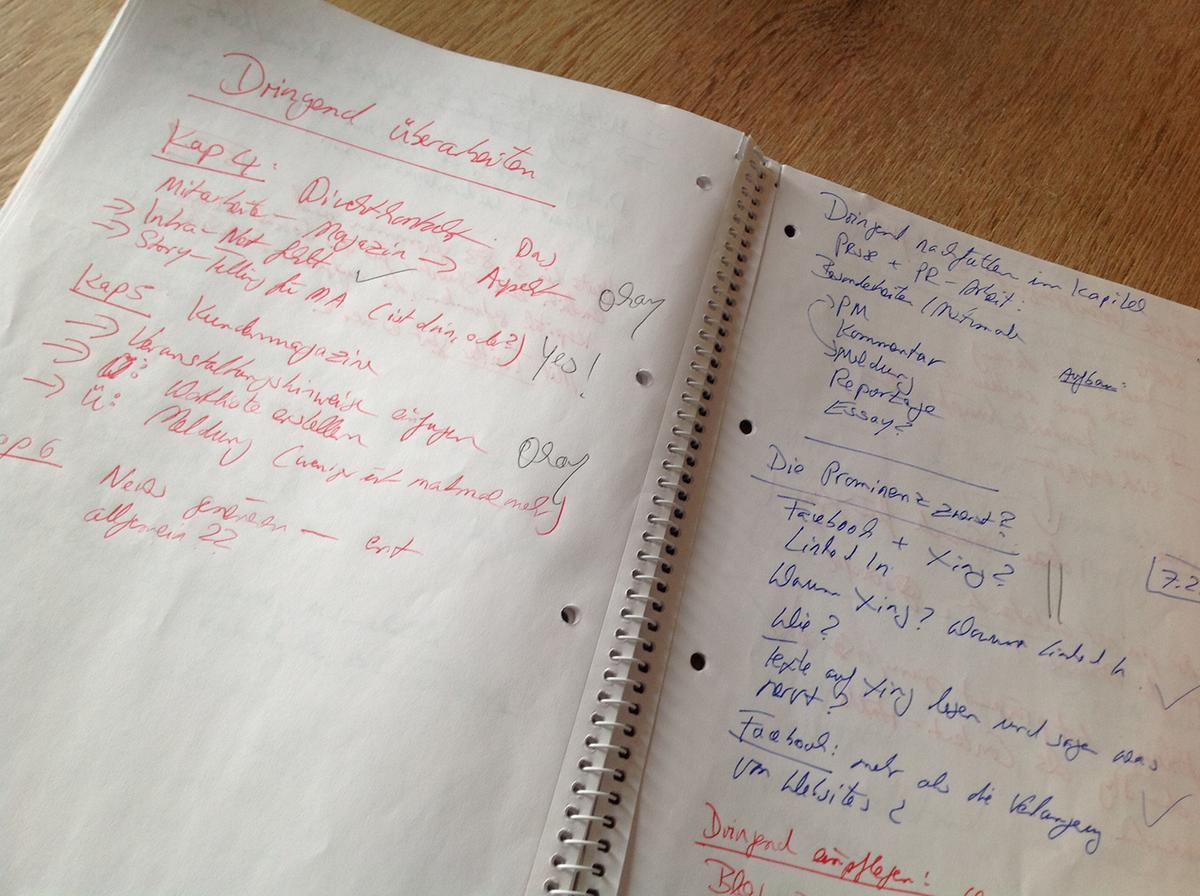 Dringend überarbeiten
Kap 4:
Das
Mitarbeiter-Magazin → Aspekt
⇒ Intra-Net fehlt ✓ Okay
⇒ Story-Telling für MA (ist drin, oder?) Yes!
Kap 5 Kundenmagazine
→ Veranstaltungshinweise einfügen
→ Ü: erstellern Okay
→ Ü: Meldung (weniger ist
Kap 6
News generieren — erst
allgemein ??
Dringend im Kapitel
+ PR-Arbeit:
Besonderheiten / Merkmale
PM
Kommentar
Meldung
Reportage
Essay?
Aufbau:
Die Prominenz zuerst?
Facebook + Xing?
Linked In
Warum Xing? Warum Linked In.
Wie?
7.2
Texte auf Xing lesen und sagen was
nervt?
Facebook: mehr als die Verlängerung
von Websites?
Dringend einpflegen: